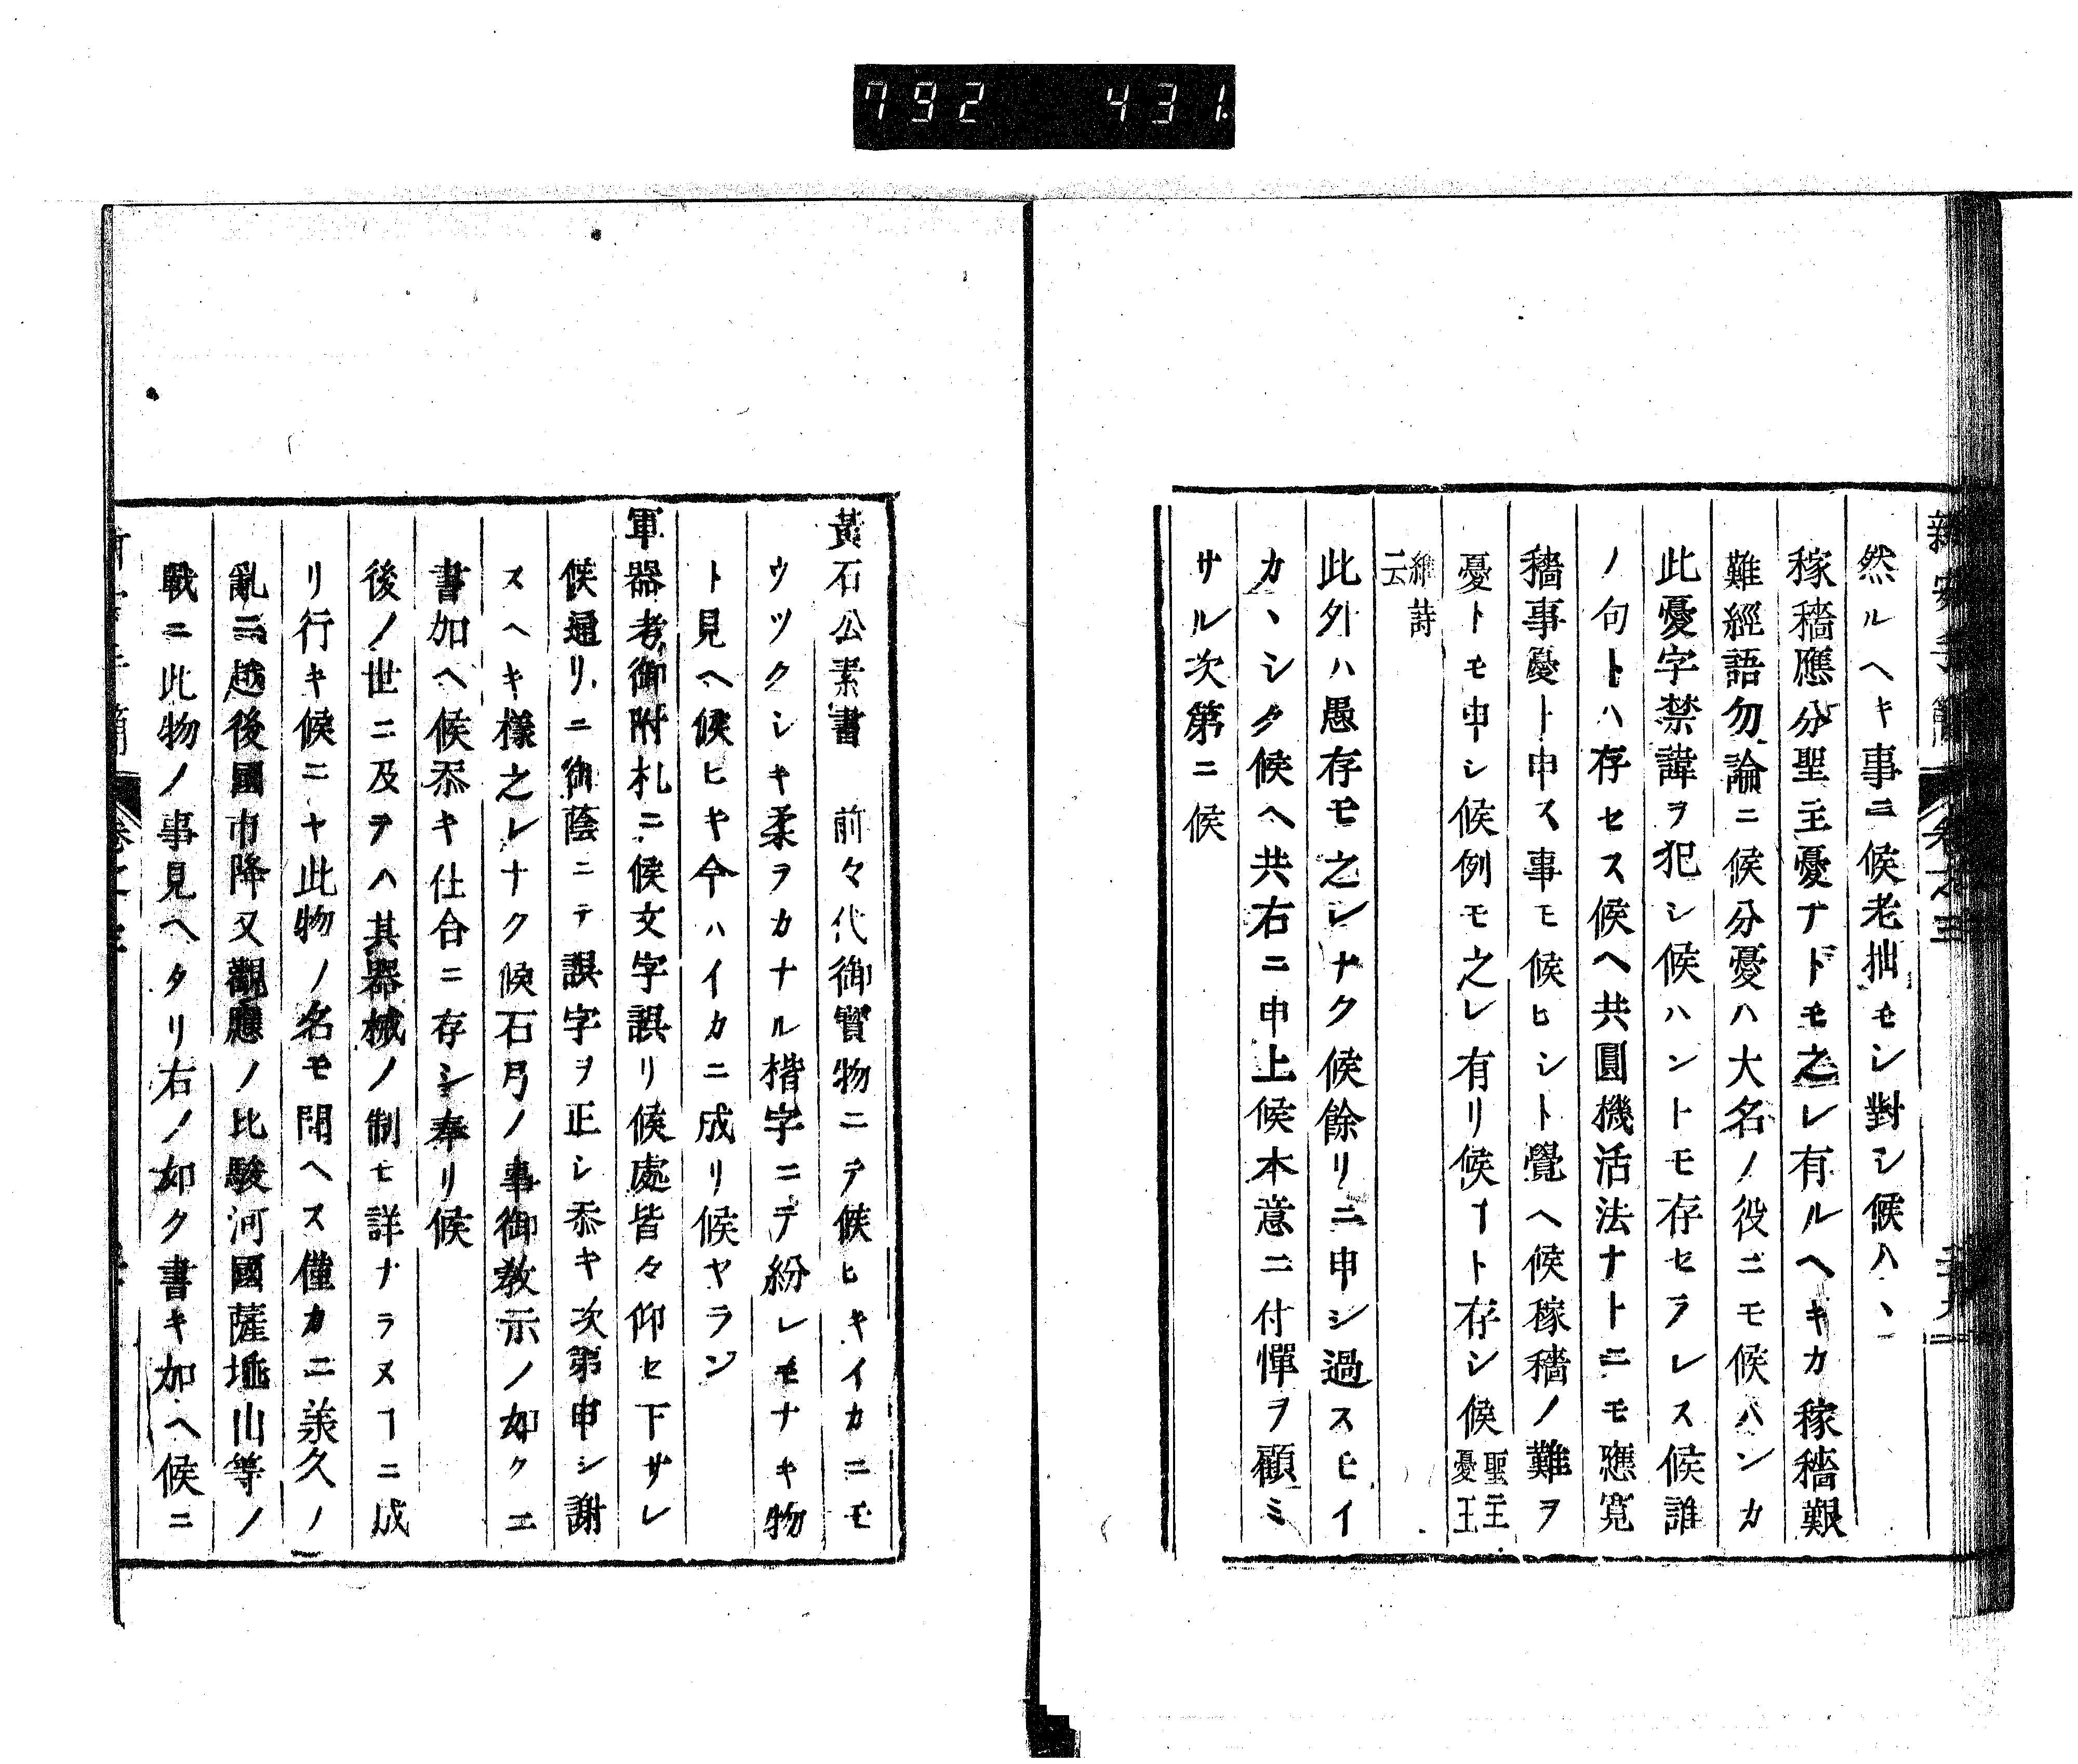 792 431
然ルヘキ事ニ候老拙モシ對シ候ハヽ
稼穡應分聖主憂ナドモ之レ有ルヘキカ稼穡艱
難經語勿論ニ候分憂ハ大名ノ役ニモ候ハンカ
此憂字禁諱ヲ犯シ候ハントモ存セラレス候誰
ノ句トハ存セス候ヘ共圓機活法ナトニモ應寬
穡事憂ト申ス事モ候ヒシト覺ヘ候稼穡ノ難ヲ
憂トモ申シ候例モ之レ有リ候ヿト存シ候聖主憂王
維詩云云
此外ハ愚存モ之レナク候餘リニ申シ過スヒイ
カヽシク候ヘ共右ニ申上候本意ニ付憚ヲ顧ミ
サル次第ニ候
黃石公素書 前々代御寳物ニテ候ヒキイカニモ
ウツクシキ柔ヲカナル楷字ニテ紛レモナキ物
ト見ヘ候ヒキ今ハイカニ成リ候ヤラン
軍器考御附札ニ候文字誤リ候處皆々仰セ下サレ
候通リニ御蔭ニテ誤字ヲ正シ忝キ次第申シ謝
スヘキ樣之レナク候石弓ノ事御敎示ノ如クニ
書加ヘ候忝キ仕合ニ存シ奉リ候
後ノ世ニ及テハ其器械ノ制モ詳ナラヌヿニ成
リ行キ候ニヤ此物ノ名モ聞ヘス僅カニ羕久ノ
亂ニ越後國市降又觀應ノ比駿河國薩埵山等ノ
戰ニ此物ノ事見ヘタリ右ノ如ク書キ加ヘ候ニ